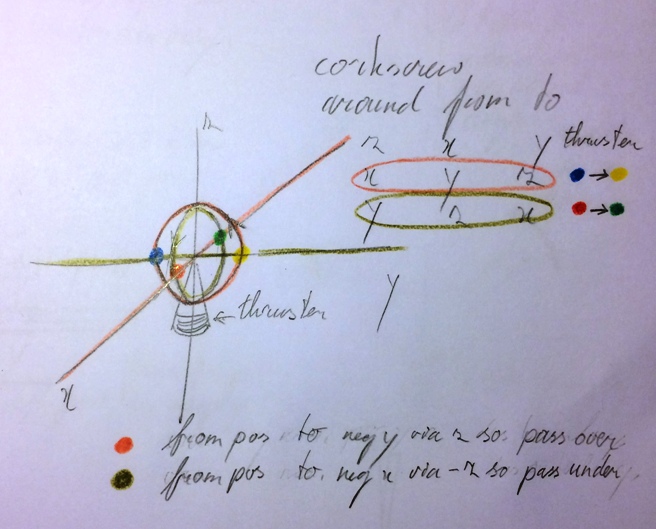 corkscrew
around from to
z x y thruster
x y z
y z x
z
y
← thruster
x
from pos to neg y via z so pass over
from pos to neg x via -z so pass under